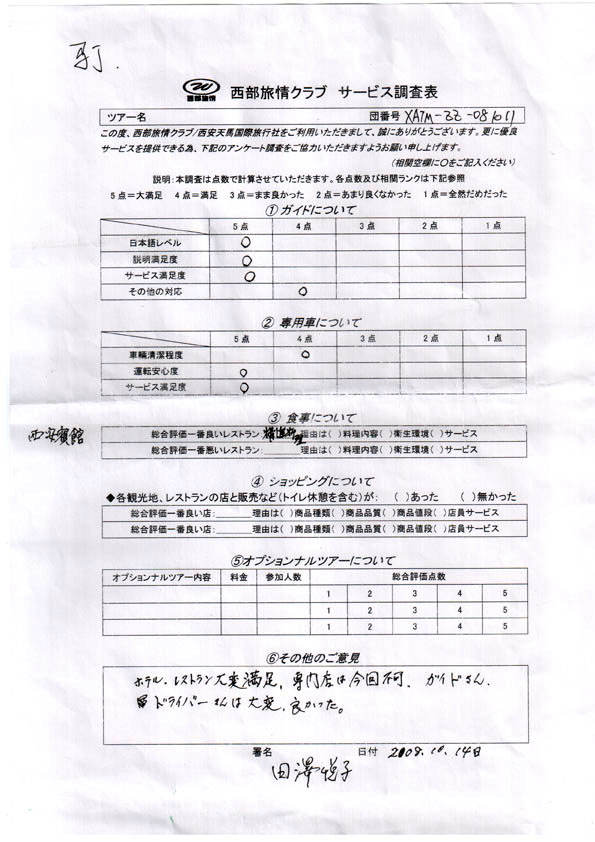 西部旅情
西部旅情クラブ サービス調査表
ツアー名 団番号 XATM-ZZ-081011
この度、西部旅情クラブ/西安天馬国際旅行社をご利用いただきまして、誠にありがとうございます。更に優良
サービスを提供できる為、下記のアンケート調査をご協力いただきますようお願い申し上げます。
(相関空欄に〇をご記入ください)
説明:本調査は点数で計算させていただきます。各点数及び相関ランクは下記参照
5点=大満足 4点=満足 3点=まま良かった 2点=あまり良くなかった 1点=全然だめだった
①ガイドについて
5点 4点 3点 2点 1点
日本語レベル ○
説明満足度 ○
サービス満足度 ○
その他の対応 ○
② 専用車について
5点 4点 3点 2点 1点
車輛清潔程度 ○
運転安心度 ○
サービス満足度 ○
③ 食事について
西安賓館
総合評価一番良いレストラン 理由は( )料理内容( )衛生環境( )サービス
総合評価一番悪いレストラン:______理由は( )料理内容( )衛生環境( )サービス
④ ショッピングについて
◆各観光地、レストランの店と販売など(トイレ休憩を含む)が: ( )あった ( )無かった
総合評価一番良い店:______理由は( )商品種類( )商品品質( )商品値段( )店員サービス
総合評価一番良い店:______理由は( )商品種類( )商品品質( )商品値段( )店員サービス
⑤オプションナルツアーについて
オプションナルツアー内容 料金 参加人数 総合評価点数
1 2 3 4 5
1 2 3 4 5
1 2 3 4 5
⑥その他のご意見
ホテル、レストラン大変満足。専門店は今回不可、ガイドさん、
ドライバーさんは大変、良かった。
署名 日付 2008.10.14日
田澤悦子